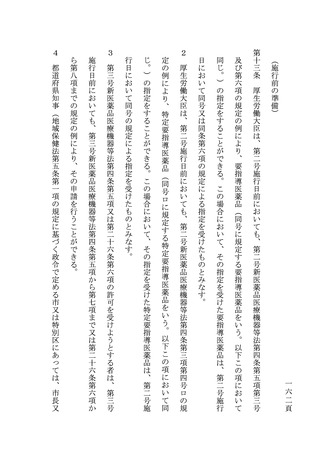 一六二頁
（施行前の準備）
第十三条　厚生労働大臣は、第二号施行日前においても、第二号新医薬品医療機器等法第四条第五項第三号
及び第六項の規定の例により、要指導医薬品（同号に規定する要指導医薬品をいう。以下この項において
同じ。）の指定をすることができる。この場合において、その指定を受けた要指導医薬品は、第二号施行
日において同号又は同条第六項の規定による指定を受けたものとみなす。
２　厚生労働大臣は、第二号施行日前においても、第二号新医薬品医療機器等法第四条第五項第四号ロの規
定の例により、特定要指導医薬品（同号ロに規定する特定要指導医薬品をいう。以下この項において同
じ。）の指定をすることができる。この場合において、その指定を受けた特定要指導医薬品は、第二号施
行日において同号の規定による指定を受けたものとみなす。
３　第三号新医薬品医療機器等法第四条第五項又は第二十六条第六項の許可を受けようとする者は、第三号
施行日前においても、第三号新医薬品医療機器等法第四条第五項から第七項まで又は第二十六条第六項か
ら第八項までの規定の例により、その申請を行うことができる。
４　都道府県知事（地域保健法第五条第一項の規定に基づく政令で定める市又は特別区にあっては、市長又